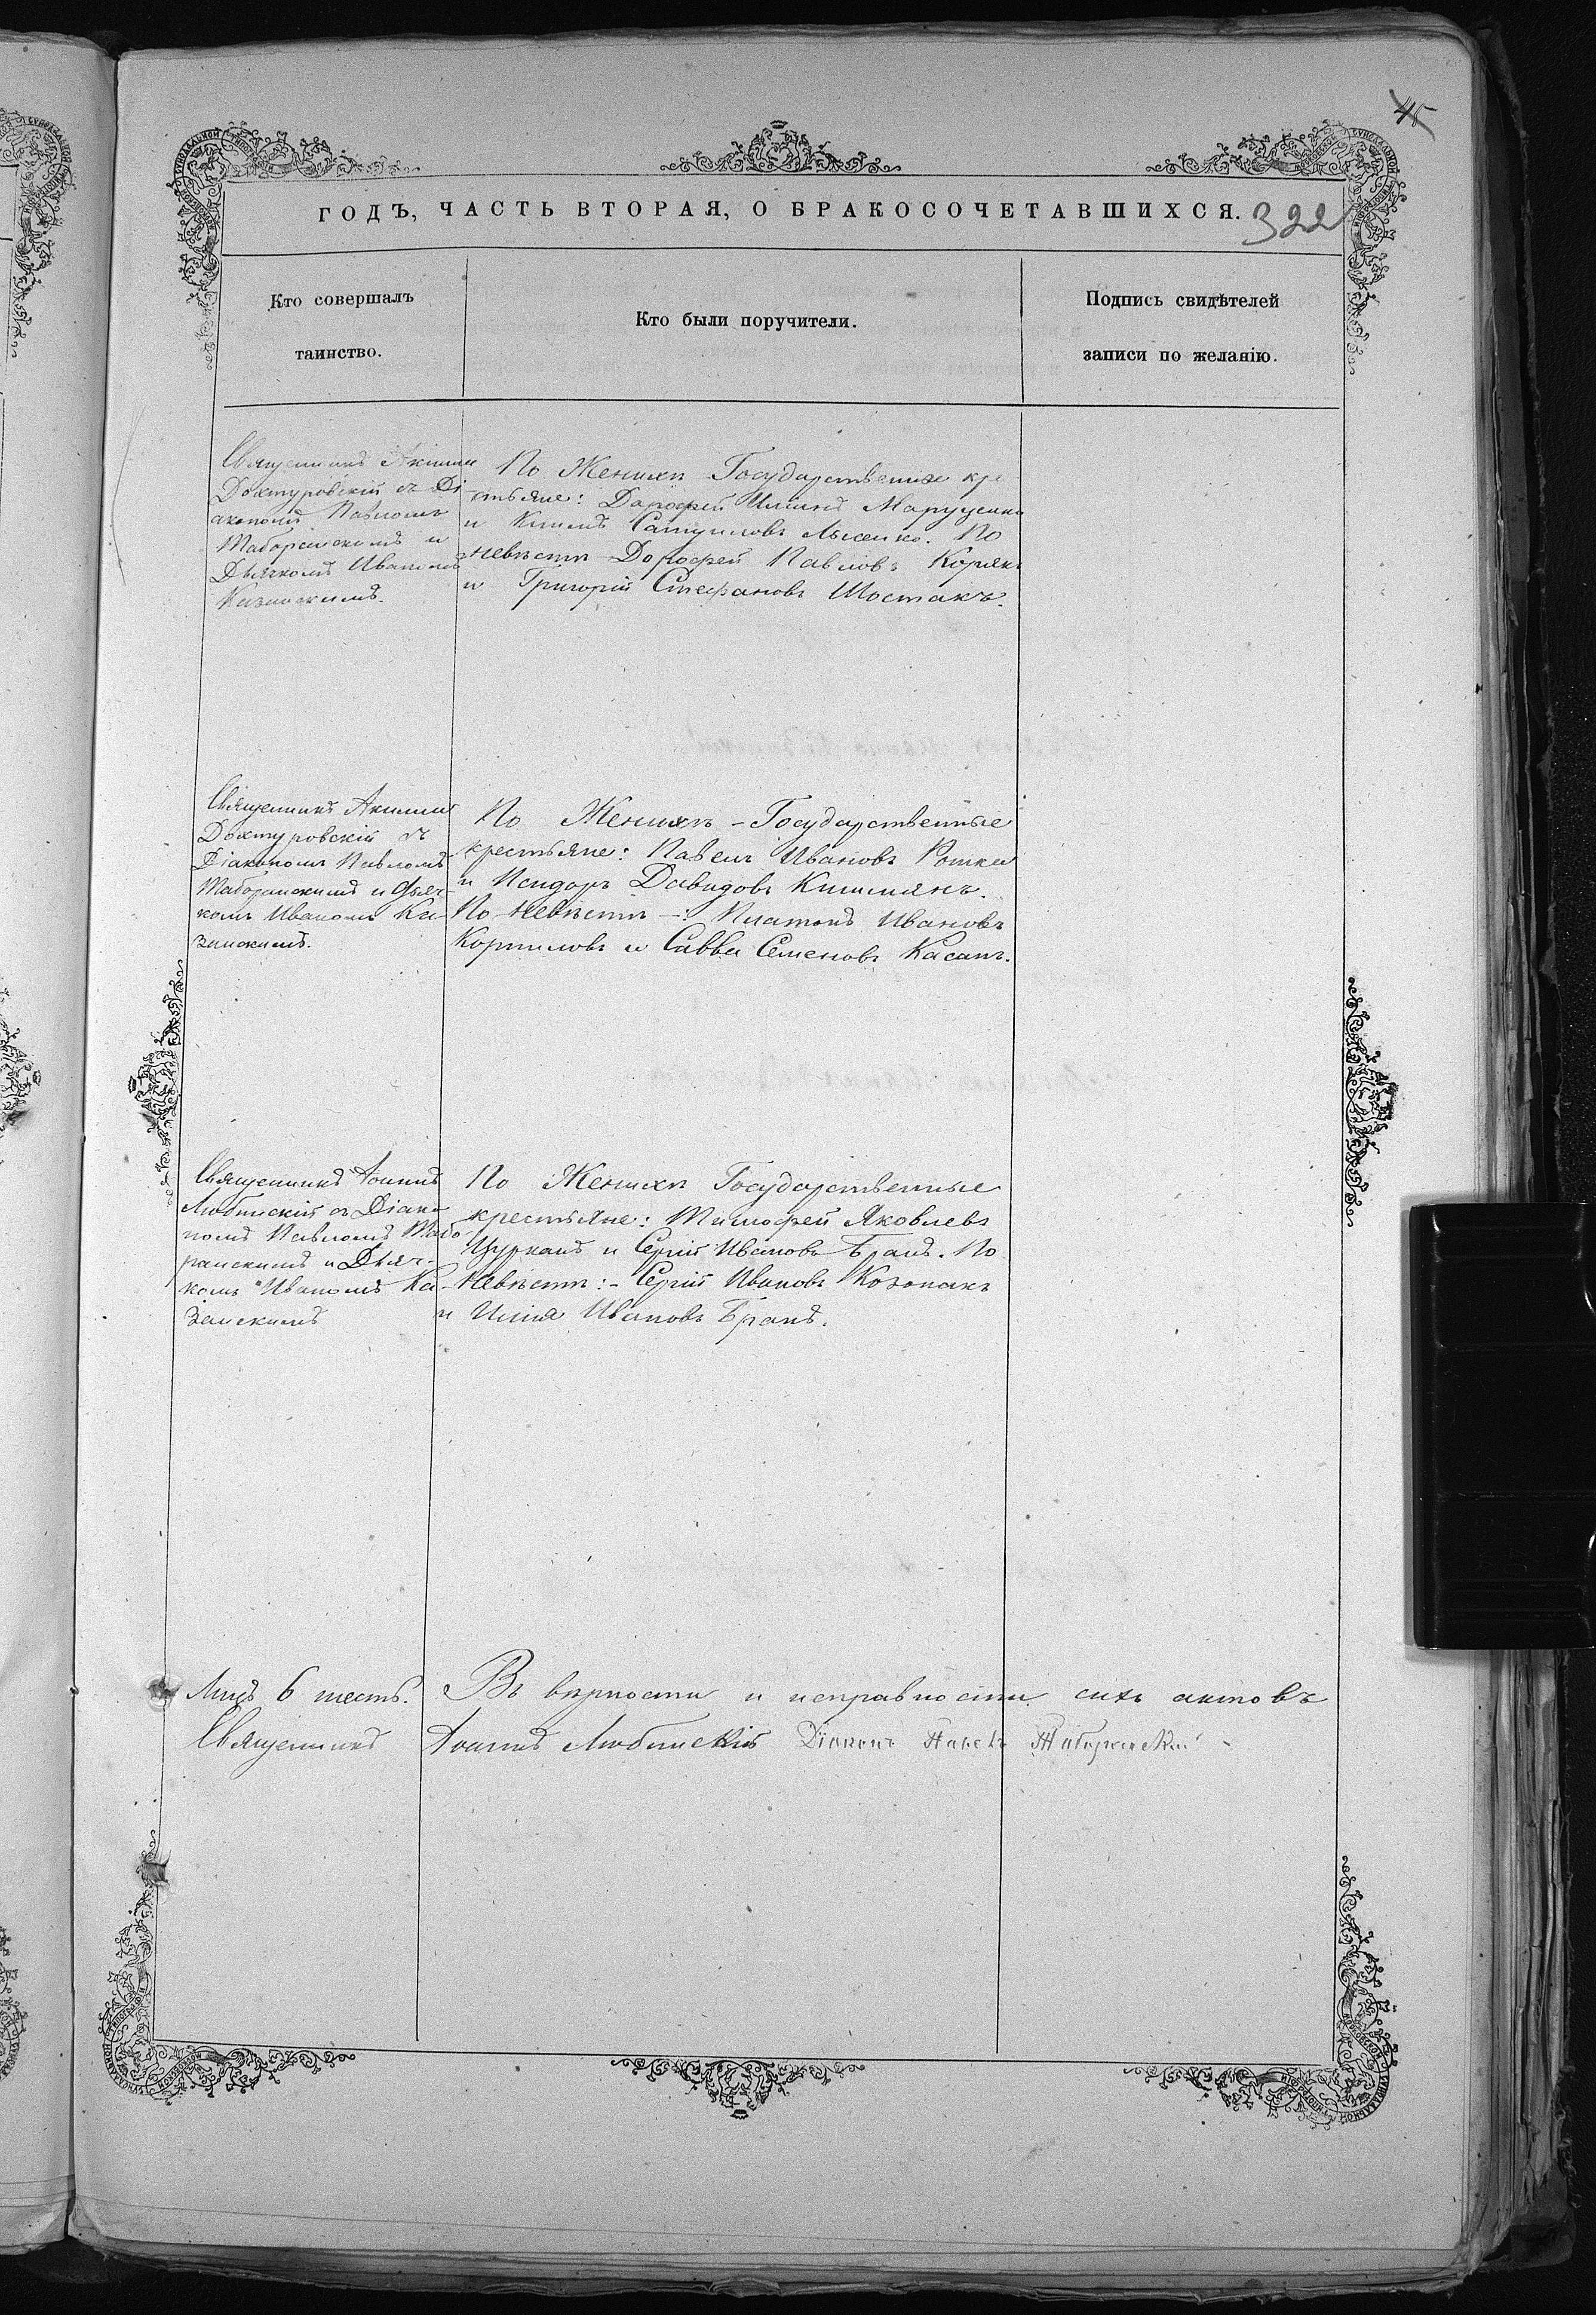 ГОДЪ, ЧАСТЬ ВТОРАЯ, О БРАКОСОЧЕТАВШИХСЯ. 322
Кто совершалъ
таинство.
Кто были поручители.
Подпись свидѣтелей
записи по желанію.
Священникъ
Дохтуровскій съ Ді
акономъ Павломъ
и
Дьячкомъ Иваномъ
Казанскимъ.
По Женихѣ Государственные кре
стьяне: Дорофей
и Лысенко. По
Невѣстѣ Дорофей Павловъ Корякъ
и Григорій Стефановъ Шостакъ.
Священникъ
Дохтуровскій съ
Діакономъ Павломъ
и Дьяч-
комъ Иваномъ Ка-
занскимъ.
По Женихѣ - Государственные
крестьяне: Павелъ Ивановъ Ротка
и Исидоръ Давидовъ
По Невѣстѣ -: Платонъ Ивановъ
Корниловъ и Савва Семеновъ Касапъ.
Священникъ Іоаннъ
Любинскій съ Діако
номъ Павломъ Табо
ранскимъ и Дьяч-
комъ Иваномъ Ка-
занскимъ
По Женихѣ Государственные
крестьяне: Тимофей Яковлевъ
Цурканъ и Сергій Ивановъ Бранъ. По
Невѣстѣ: - Сергій Ивановъ Козонакъ
и Илія Ивановъ Бранъ.
Лицъ 6 шесть. Въ вѣрности и исправности сихъ актовъ
Священникъ Іоаннъ Любинскій Діаконъ Павелъ Таборанскій